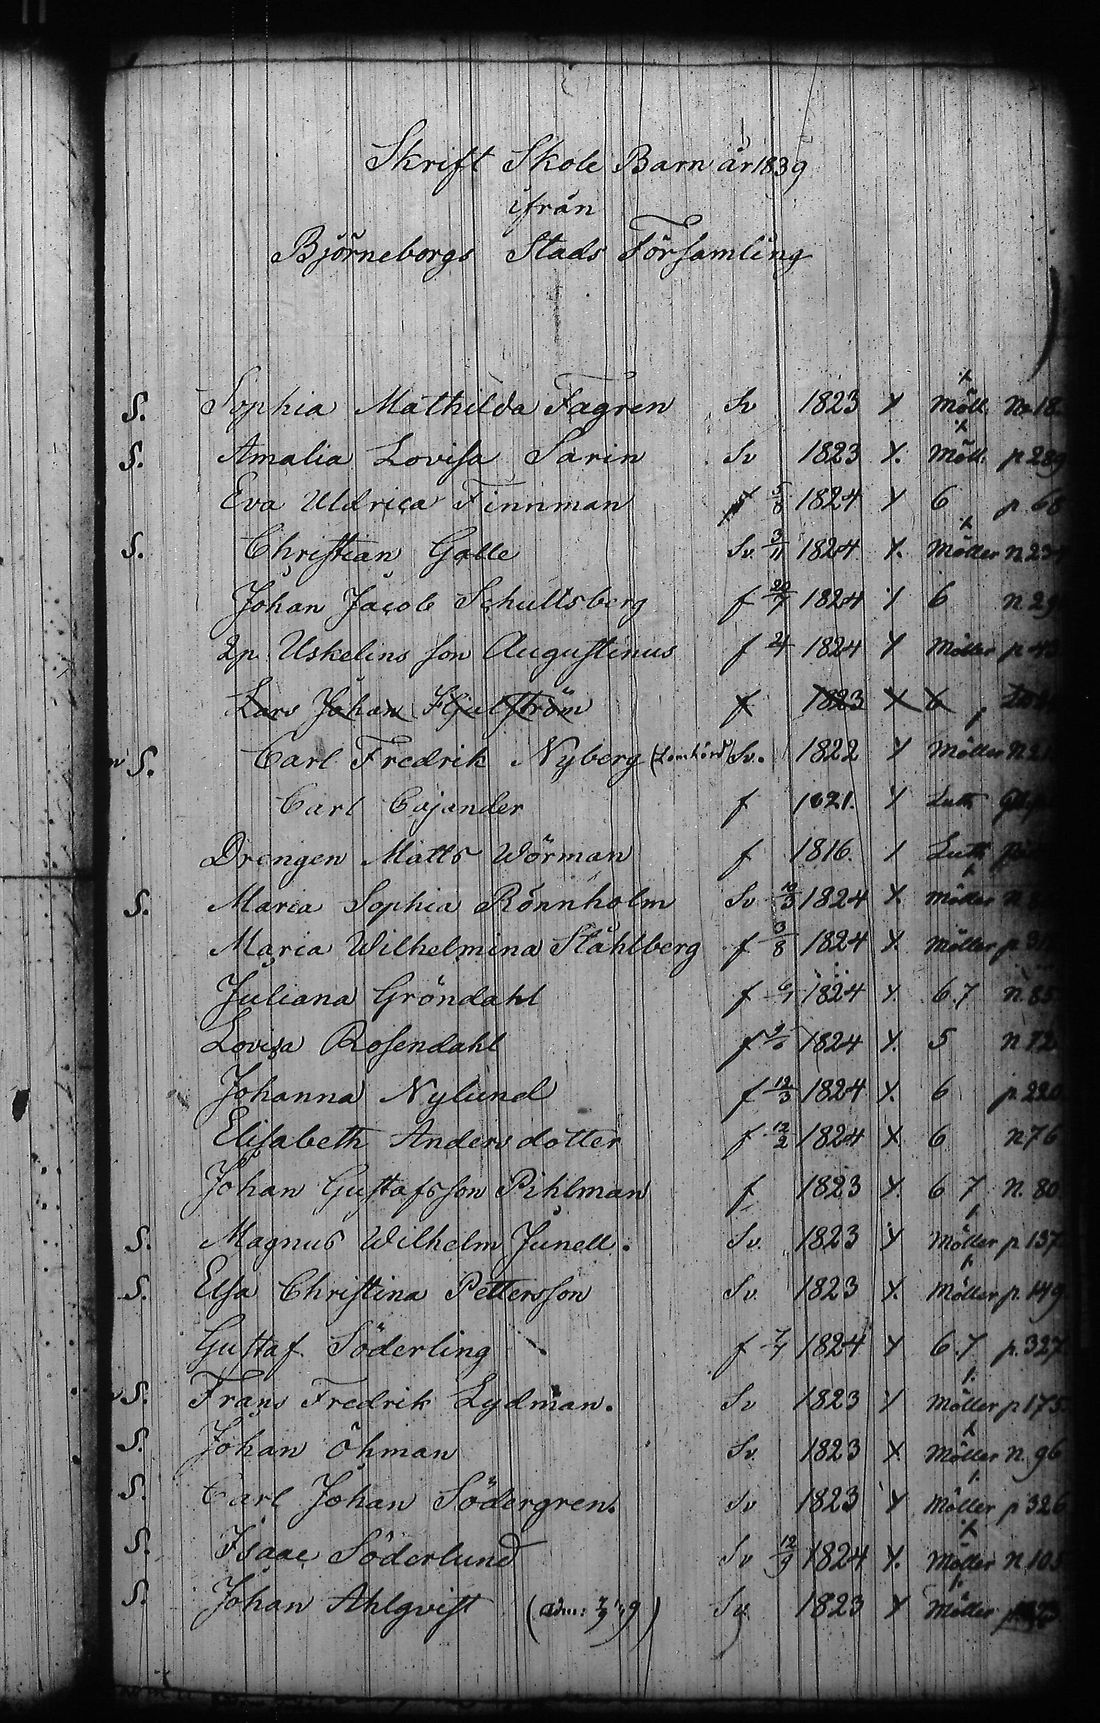 Skrift Skole Barn år 1839
ifrån
Björneborgs Stads Församling
S. Sophia Mathilda Fagren Sv 1823 X Möll. No 18
S. Amalia Lovisa Sarin Sv 1823 X. Möll. p 289
Eva Uldrica Finnman f 5/8 1824 X 6 p. 68
S. Christian Galle Sv. 3/11 1824 X. Möller n. 234
Johan Jacob Schultsberg f 20/7 1824 X 6 n. 29
Uskelins son Augustinus f 1824 X Möller p
Lars Johan f 1823 X 6
S. Carl Fredrik Nyberg Sv. 1822 X Möller N 21
Carl Cajander f 1821. X Lutt
Drengen Matts Wörman f 1816. Lutt
S. Maria Sophia Rönnholm Sv 10/3 1824 X. Möller n
Maria Wilhelmina Ståhlberg f 3/8 1824 X. Möller p
Juliana Gröndahl f 1824 X. 6.7 n. 85
Lovisa Rosendahl f 1824 X. 5 n 72
Johanna Nylund f 12/3 1824 X. 6 p. 220
Elisabeth Andersdotter f 12/2 1824 X. 6 n 76
Johan Gustafsson Pihlman f 1823 X. 6 7 n. 80
S. Magnus Wilhelm Junell. Sv. 1823 X Möller p 137
S. Elsa Christina Pettersson Sv. 1823 X. Möller p. 149
Gustaf Söderling f 1824 X 6.7 p. 327
S. Frans Fredrik Lydman. Sv 1823 X Möller p 175
S. Johan Öhman Sv. 1823 X Möller n. 96
S. Carl Johan Södergren. Sv 1823 X Möller p 326
S. Isaac Söderlund Sv 12/9 1824 X. Möller n 105
S. Johan Ahlqvist Sv 1823 X Möller